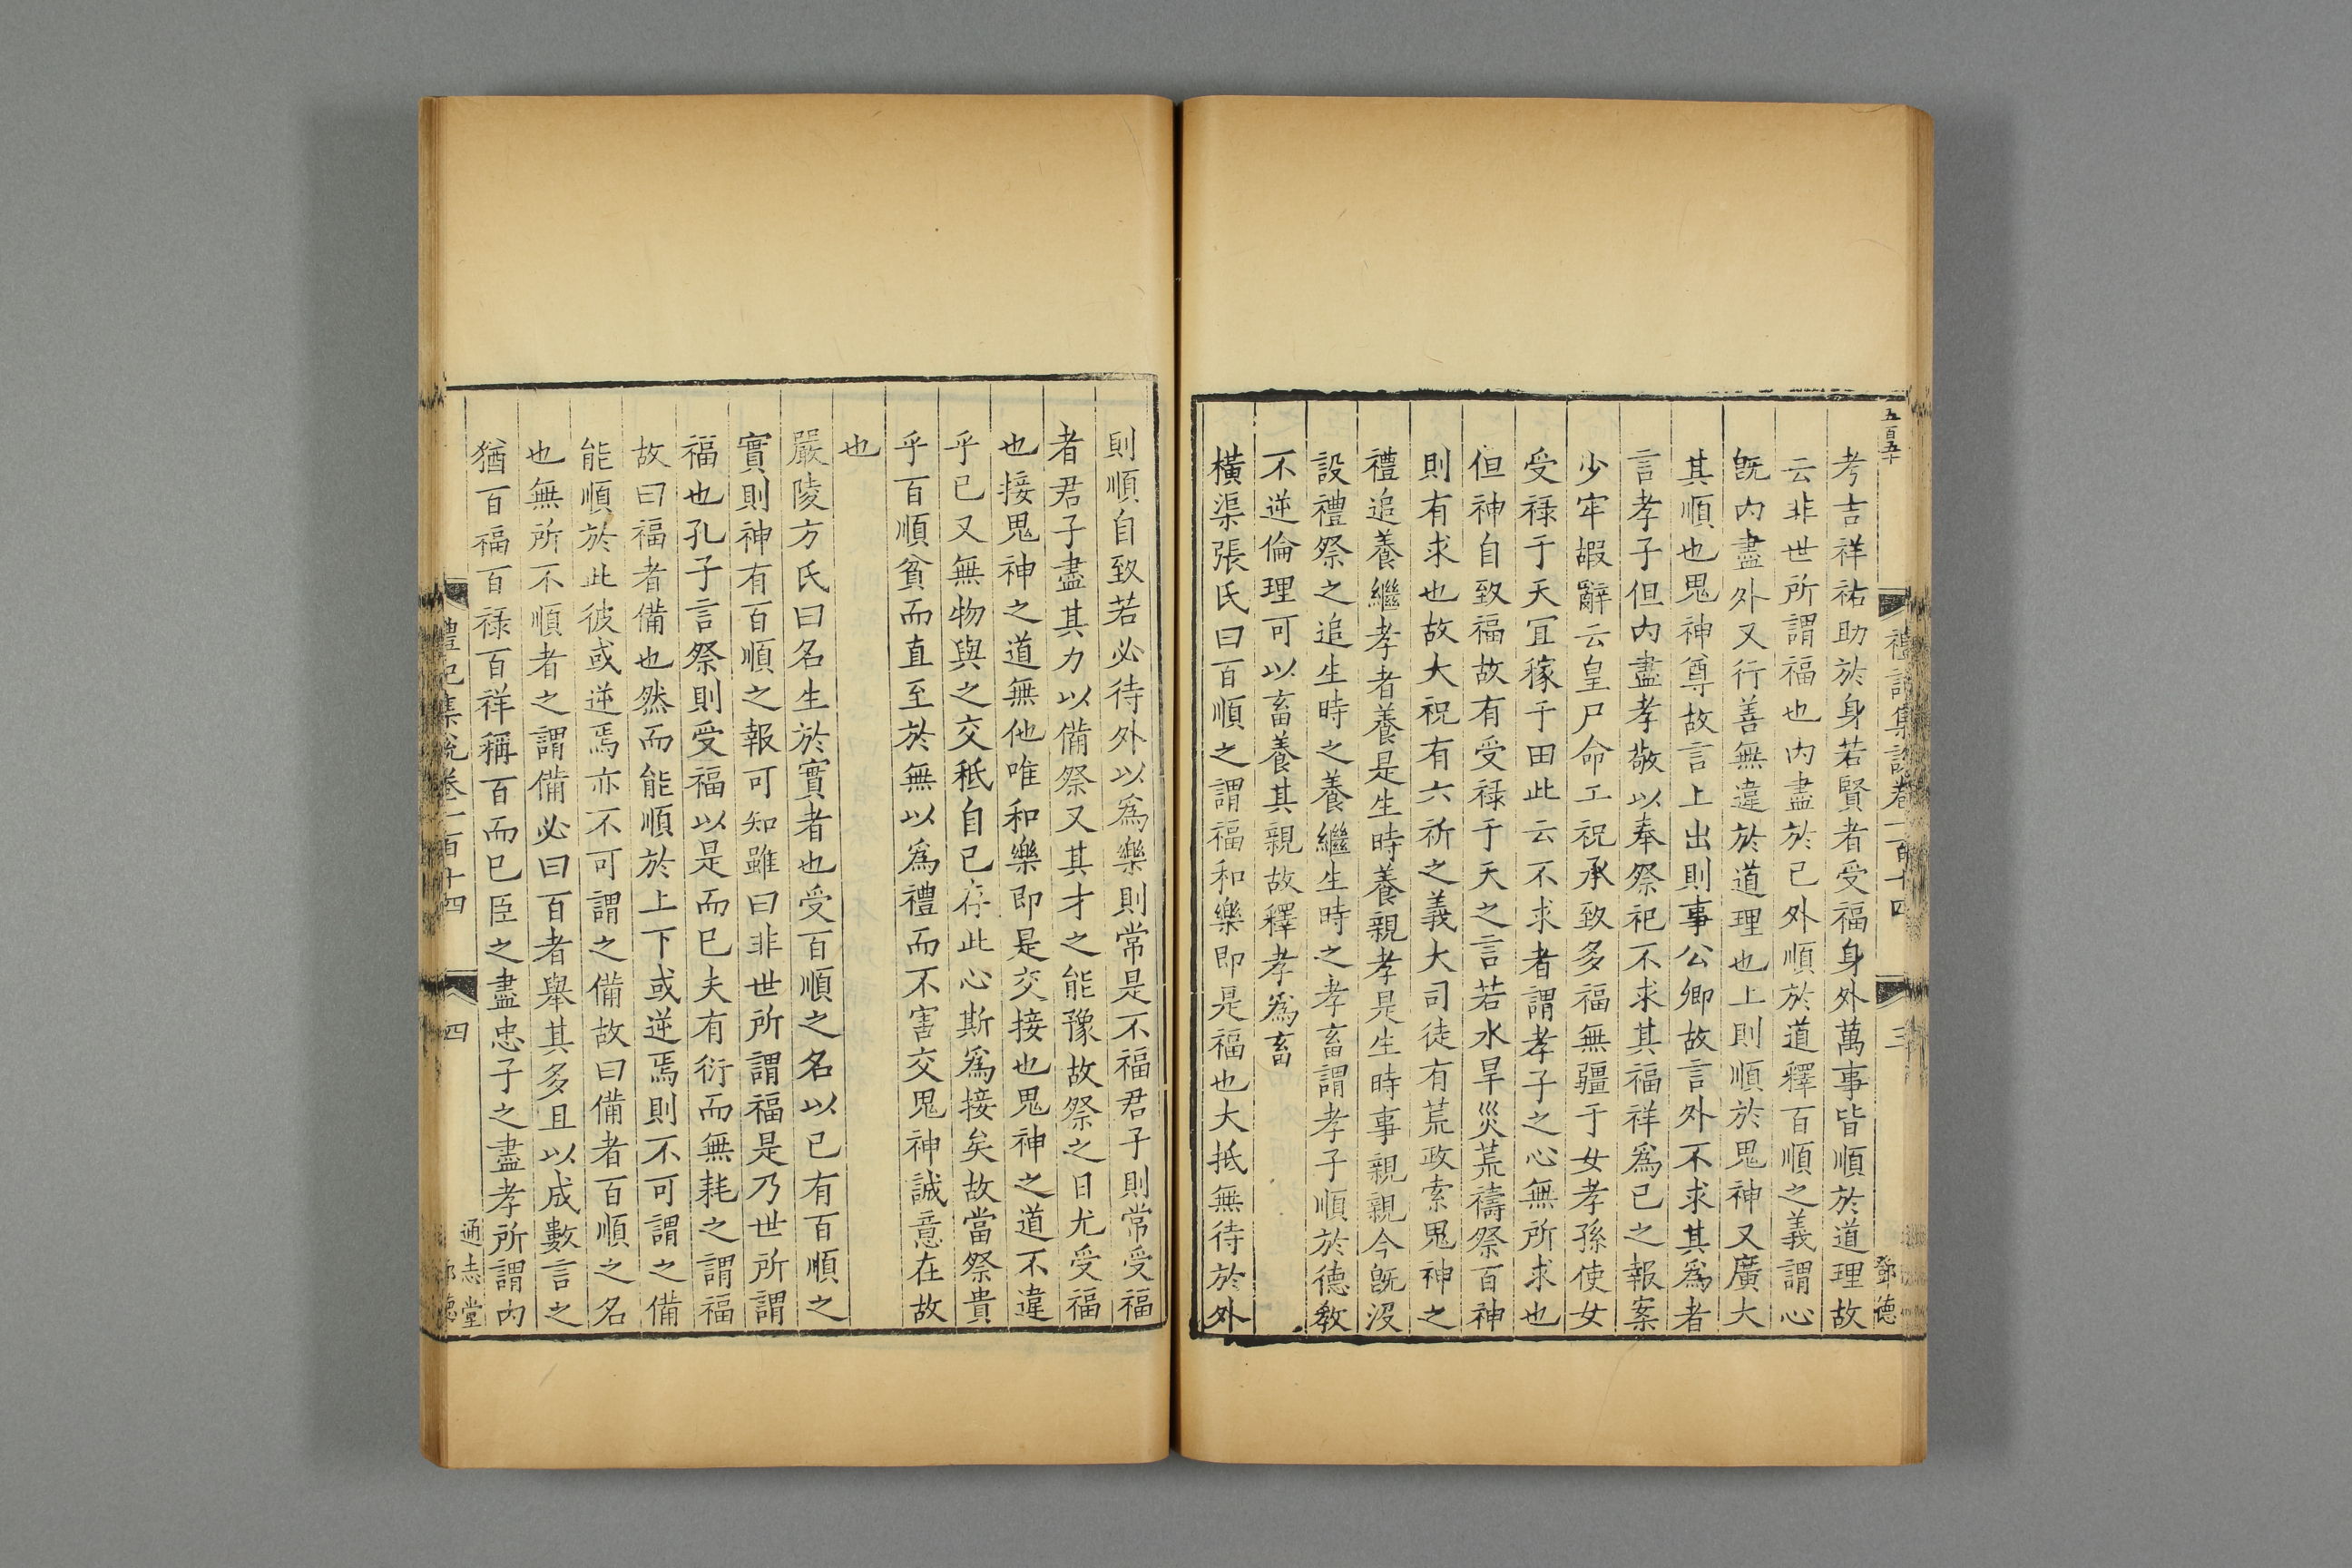 五百五十
禮記集說卷一百十四
三
鄧德
考吉祥祐助於身若賢者受福身外萬事皆順於道理故
云非世所謂福也內盡於已外順於道釋百順之義謂心
旣內盡外又行善無違於道理也上則順於鬼神又廣大
其順也鬼神尊故言上出則事公卿故言外不求其為者
言孝子但內盡孝敬以奉祭祀不求其福祥為已之報案
少牢嘏辭云皇尸命工祝承致多福無疆于女孝孫使女
受祿于天宜稼于田此云不求者謂孝子之心無所求也
但神自致福故有受祿于天之言若水旱災荒禱祭百神
則有求也故大祝有六祈之義大司徒有荒政索鬼神之
禮追養繼孝者養是生時養親孝是生時事親親今旣沒
設禮祭之追生時之養繼生時之孝畜謂孝子順於德敎
不逆倫理可以畜養其親故釋孝為畜
橫渠張氏曰百順之謂福和樂即是福也大抵無待於外
則順自致若必待外以為樂則常是不福君子則常受福
者君子盡其力以備祭又其才之能豫故祭之日尤受福
也接鬼神之道無他唯和樂即是交接也鬼神之道不違
乎已又無物與之交秪自已存此心斯為接矣故當祭貴
乎百順貧而直至於無以為禮而不害交鬼神誠意在故
也
嚴陵方氏曰名生於實者也受百順之名以已有百順之
實則神有百順之報可知雖曰非世所謂福是乃世所謂
福也孔子言祭則受福以是而已夫有衍而無耗之謂福
故曰福者備也然而能順於上下或逆焉則不可謂之備
能順於此彼或逆焉亦不可謂之備故曰備者百順之名
也無所不順者之謂備必曰百者舉其多且以成數言之
猶百福百祿百祥稱百而已臣之盡忠子之盡孝所謂內
禮記集說卷一百十四
四
通志堂